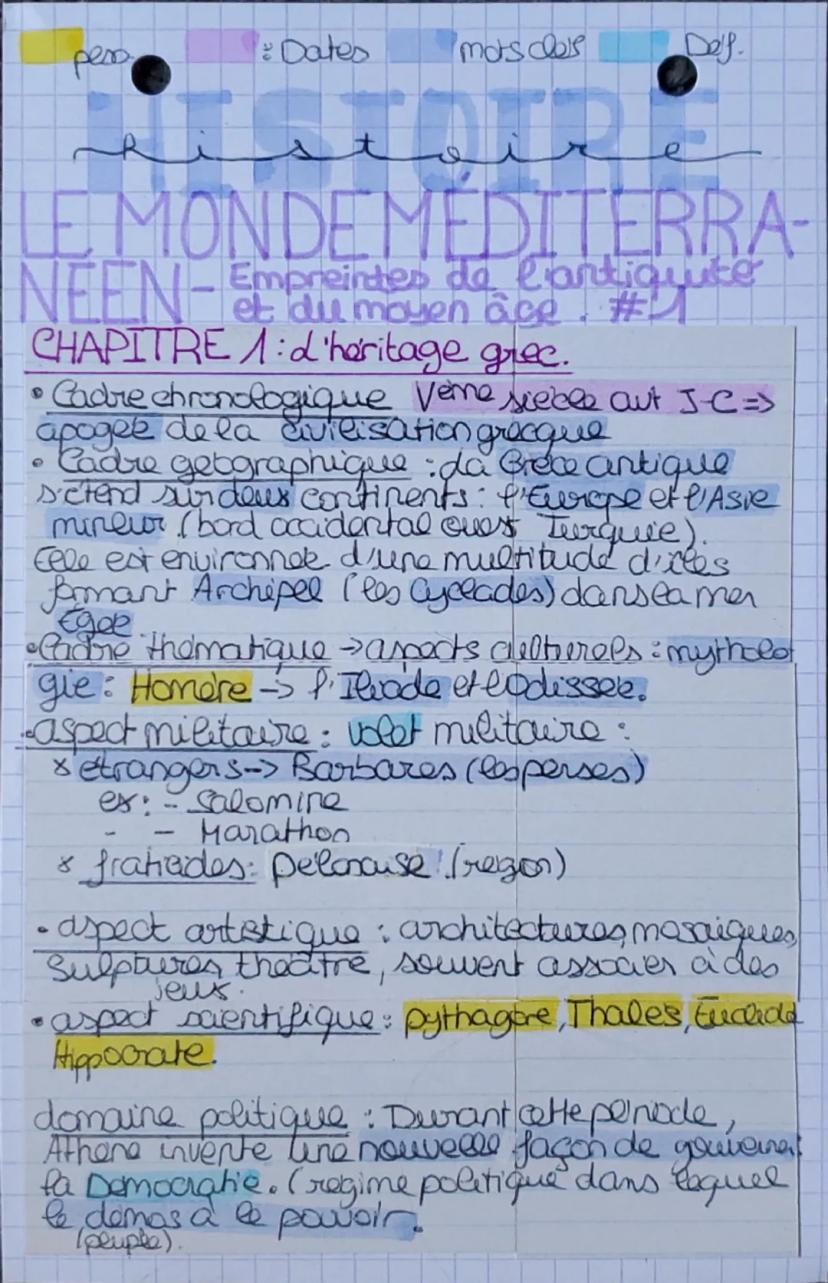 perso : Dates mots clés Def.
HISTOIRE
histoire
LE MONDE MÉDITERRA-
NÉEN - Empreintes de l'antiquité
et du moyen âge. #1
CHAPITRE 1 : L'héritage grec.
• Cadre chronologique Vème siècle avt J-C =>
apogée de la civilisation grecque
• Cadre géographique : La Grèce antique
s'étend sur deux continents : l'Europe et l'Asie
mineur (bord occidental ouest Turquie).
Elle est environnée d'une multitude d'îles
formant Archipel (les Cyclades) dans la mer
Égée
• Cadre thématique -> aspects culturels : mytholo
gie : Homère -> l'Iliade et l'Odissée.
- aspect militaire : volet militaire :
x étrangers --> Barbares (les perses)
ex: - Salamine
- - Marathon
x fratricides : (region)
• aspect artistique : architectures, mosaïques,
sulptures théâtre, souvent associés à des
jeux.
• aspect scientifique : pythagore, Thales, Euclide
Hippocrate.
domaine politique : Durant cette période,
Athène invente une nouvelle façon de gouverner
la Démocratie. (régime politique dans lequel
le démos a le pouvoir.
(peuple).